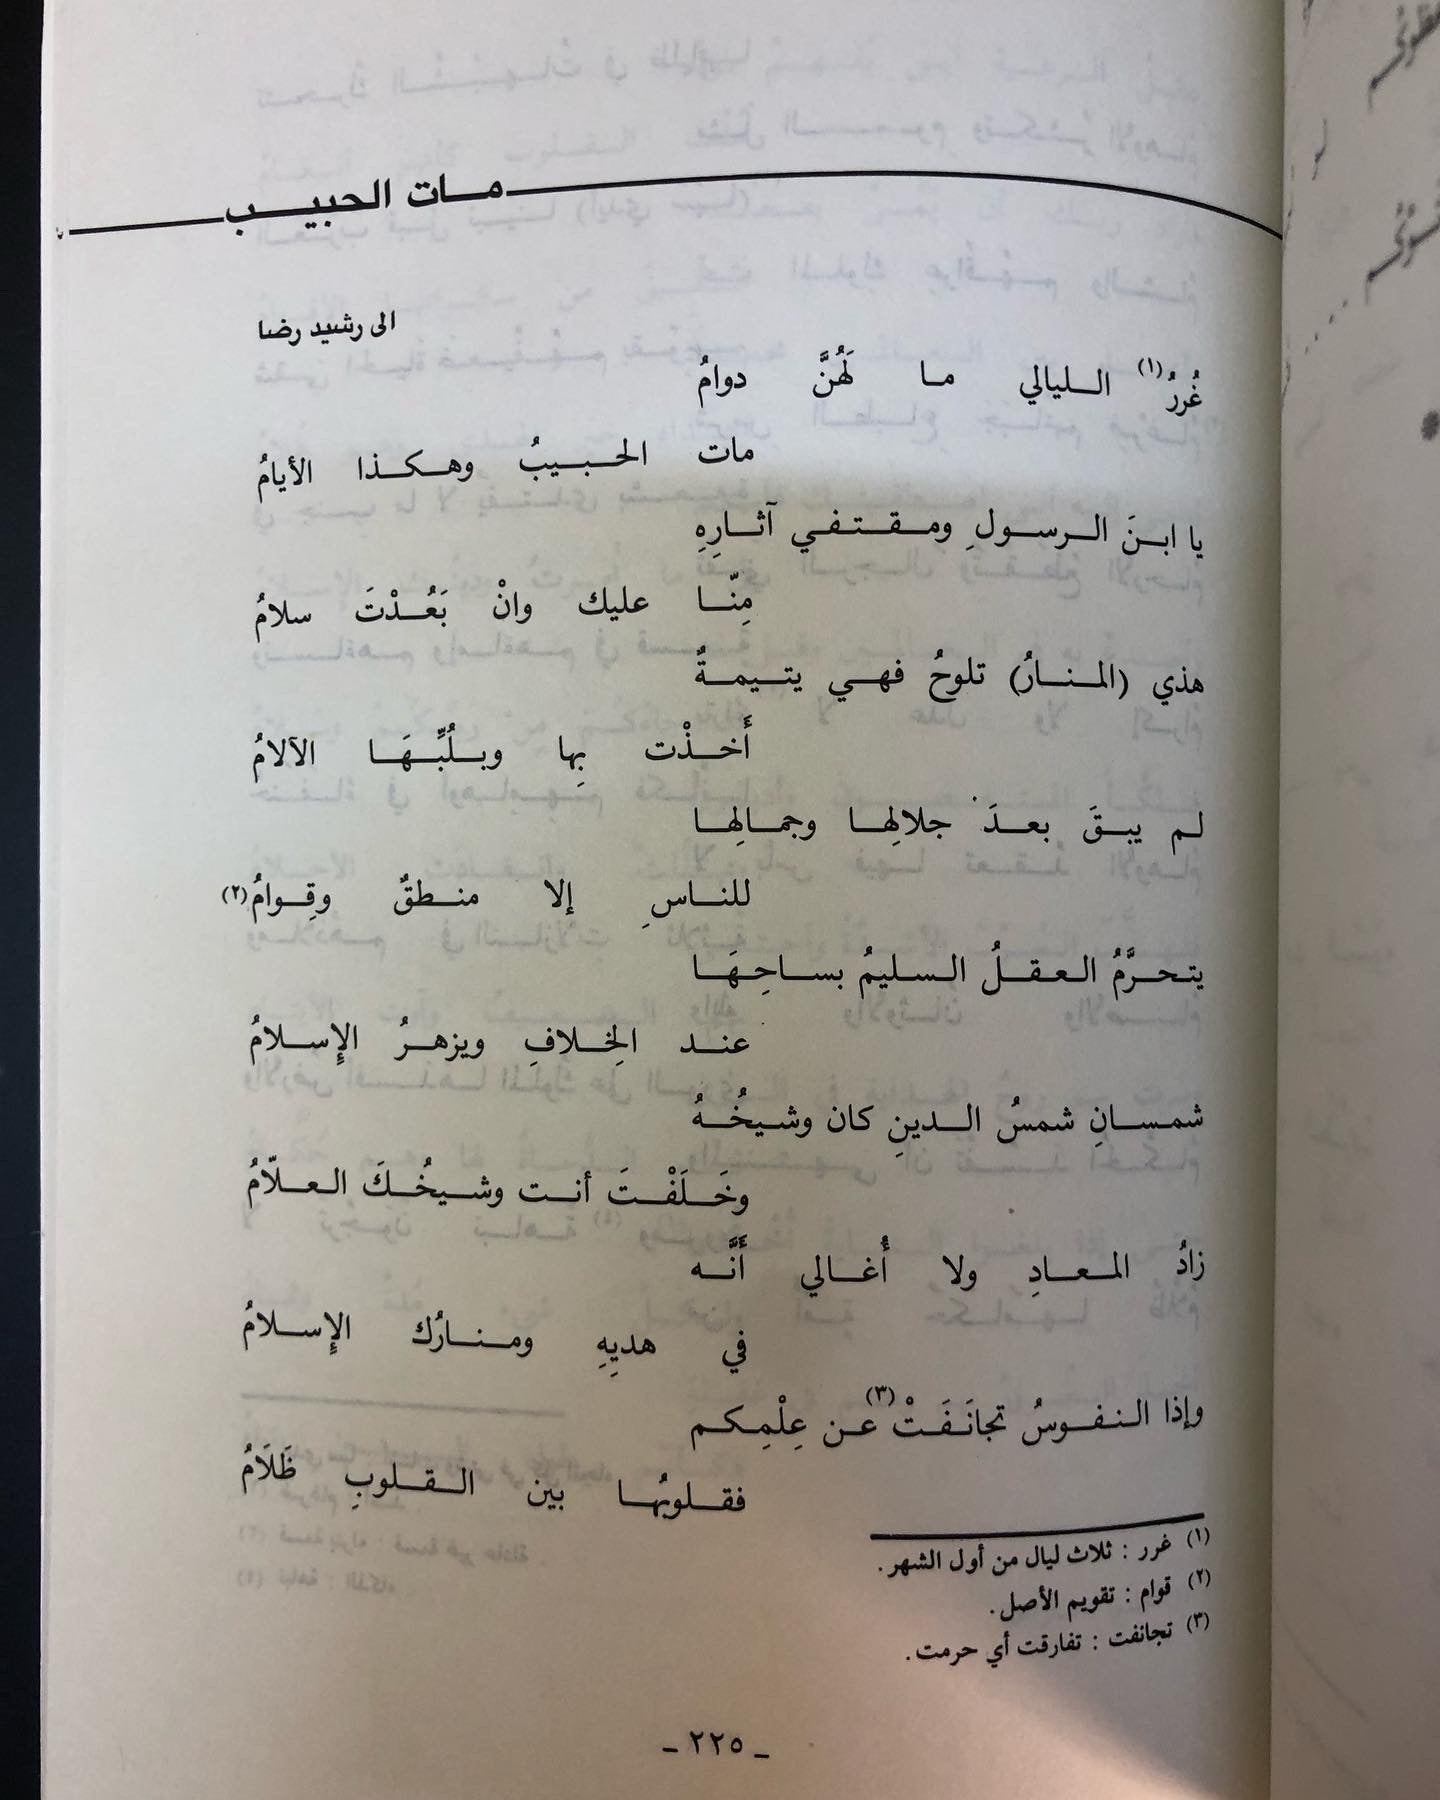 مات الحبيب
الى رشيد رضا
غُررُ (١) الليالي ما لَهُنَّ دوامُ
مات الحبيبُ وهكذا الأيامُ
يا ابنَ الرسولِ ومقتفي آثارِهِ
مِنّا عليك وانْ بَعُدْتَ سلامُ
هذي (المنارُ) تلوحُ فهي يتيمةٌ
أَخذْت بِها وبلُبِّهَا الآلامُ
لم يبقَ بعدَ جلالِها وجمالِها
للناسِ إلا منطقٌ وقِوامُ (٢)
يتحرَّمُ العقلُ السليمُ بساحِهَا
عند الخِلافِ ويزهرُ الإِسلامُ
شمسانِ شمسُ الدينِ كان وشيخُهُ
وخَلَفْتَ أنت وشيخُكَ العلّامُ
زادُ المعادِ ولا أُغالي أَنَّه
في هديِهِ ومنارُك الإِسلامُ
وإذا النفوسُ تجانَفَتْ (٣) عن عِلْمِكم
فقلوبُها بين القلوبِ ظَلَامُ
(١) غرر : ثلاث ليال من أول الشهر.
(٢) قوام : تقويم الأصل.
(٣) تجانفت : تفارقت أي حرمت.
ـ ٢٢٥ ـ